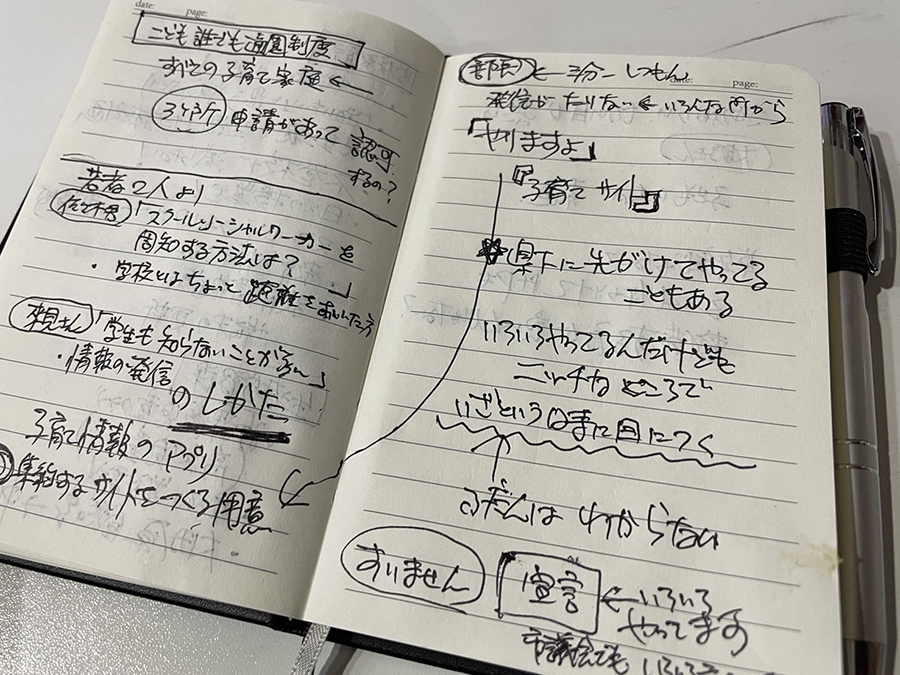 date: page:
こども誰でも通園制度
すべての子育て家庭 ←
申請があって 認可
するの?
若者2人より
「スクールソーシャルワーカーを
周知する方法は?
・学校とはちょっと距離をおいた方
」
「学生も知らないことが多い」
・情報の発信
のしかた
子育て情報の アプリ
集約するサイトをつくる用意
date: page:
発信が たりない ← いろんな所から
「やりますよ」
『子育て サイト』
県下に先がけてやってる
こともある
いろいろやってるんだけども
ニッチな ところで
いざというときに目につく
ふだんは わからない
すいません
宣言 ← いろいろ
やってます
市議会でも